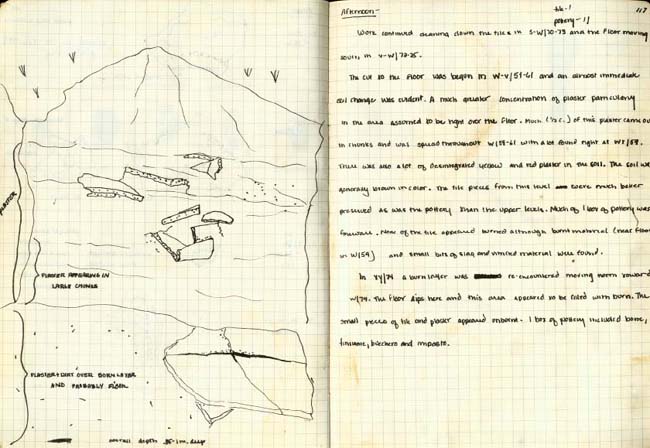 PLASTER
PLASTER APPEARING IN
LARGE CHUNKS
PLASTER + DIRT OVER BURN LAYER
AND PROBABLY FLOOR
overall depth .85-1m. deep
117
Afternoon -
tile - 1
pottery - 11
Work continued cleaning down the tiles in S-W/70-73 and the floor moving
south in
The cut to the floor was begun in W-Y/59-61 and an almost immediate
soil change was evident. A much greater concentration of plaster particularly
in the area assumed to be right over the floor. Much of this plaster came out
in chunks and was spread throughout W/59-61 with a lot found right at
There was also a lot of disintegrated yellow and red plaster in the soil. The soil was
generally brown in color. The tile pieces from this level were much better
preserved as was the pottery than the upper levels. Much of 1 box of pottery was
fineware. None of the tile appeared burned although burnt material (near floor
in W/59) and small bits of slag and vitrified material were found.
In YY/74 a burn layer was re-encountered moving north toward
W/74. The floor dips here and this area appeared to be filled with burn. The
small pieces of tile and plaster appeared unburnt. 1 box of pottery included bone,
fineware, bucchero and impasto.